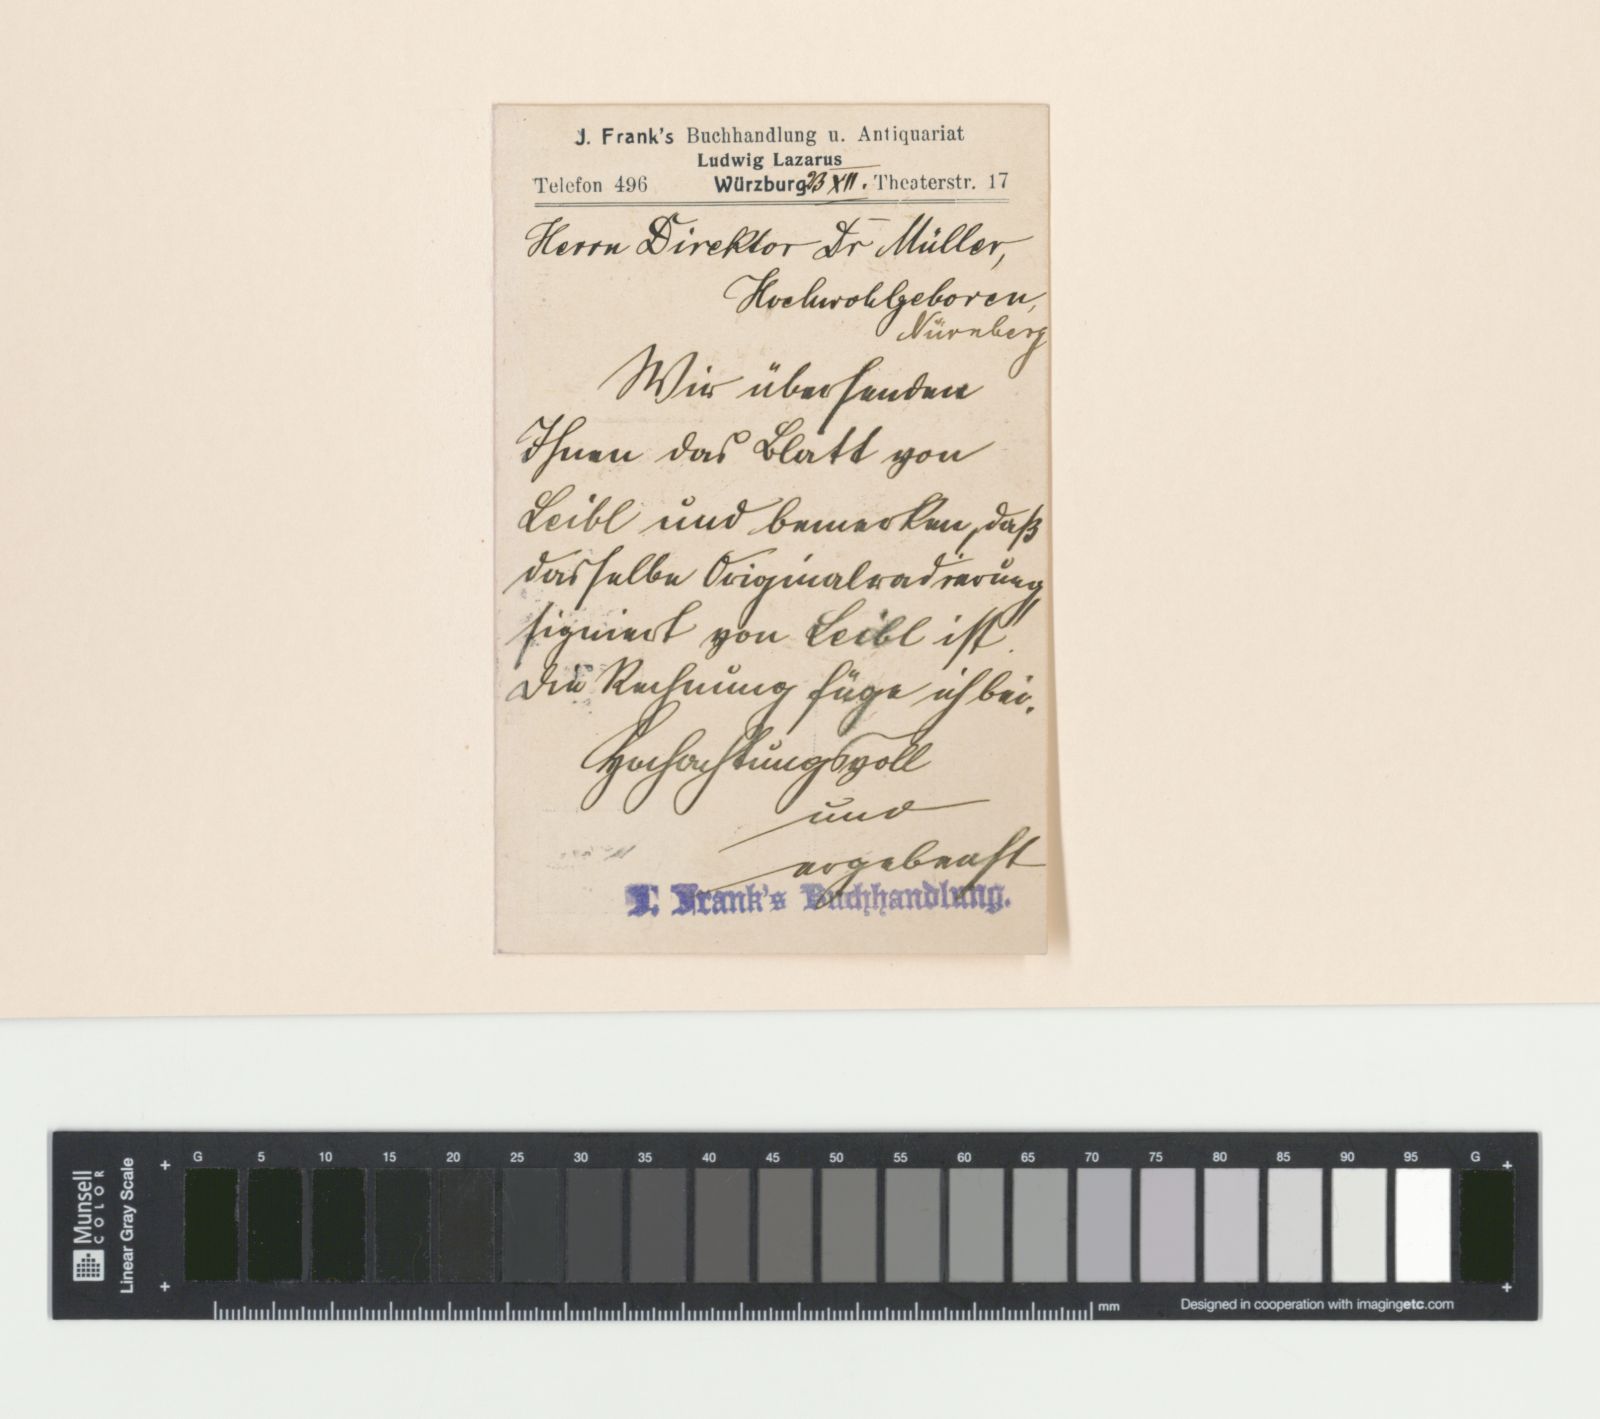 J. Frank's Buchhandlung u. Antiquariat
Ludwig Lazarus
Telefon 496 Würzburg 23 XII. Theaterstr. 17
Herrn Direktor Dr Müller,
Hochwohlgeboren,
Nürnberg
Wir übersenden
Ihnen das Blatt von
Leibl und bemerken, daß
dasselbe Originalradierung
signiert von Leibl ist.
Die Rechnung füge ich bei.
Hochachtungsvoll
und
ergebenst
J. Frank's Buchhandlung.
Munsell
COLOR
Linear Gray Scale
G 5 10 15 20 25 30 35 40 45 50 55 60 65 70 75 80 85 90 95 G
mm
Designed in cooperation with imagingetc.com